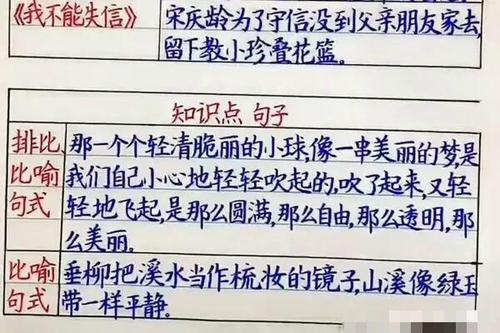 《我不能失信》
宋庆龄为了守信没到父亲朋友家去,
留下教小珍叠花篮。
知识点 句子
排比、
比喻
句式
那一个个轻清脆丽的小球,像一串美丽的梦,是
我们自己小心地轻轻吹起的,吹了起来,又轻
轻地飞起,是那么圆满,那么自由,那么透明,那
么美丽.
比喻
句式
垂柳把溪水当作梳妆的镜子,山溪像绿玉
带一样平静.